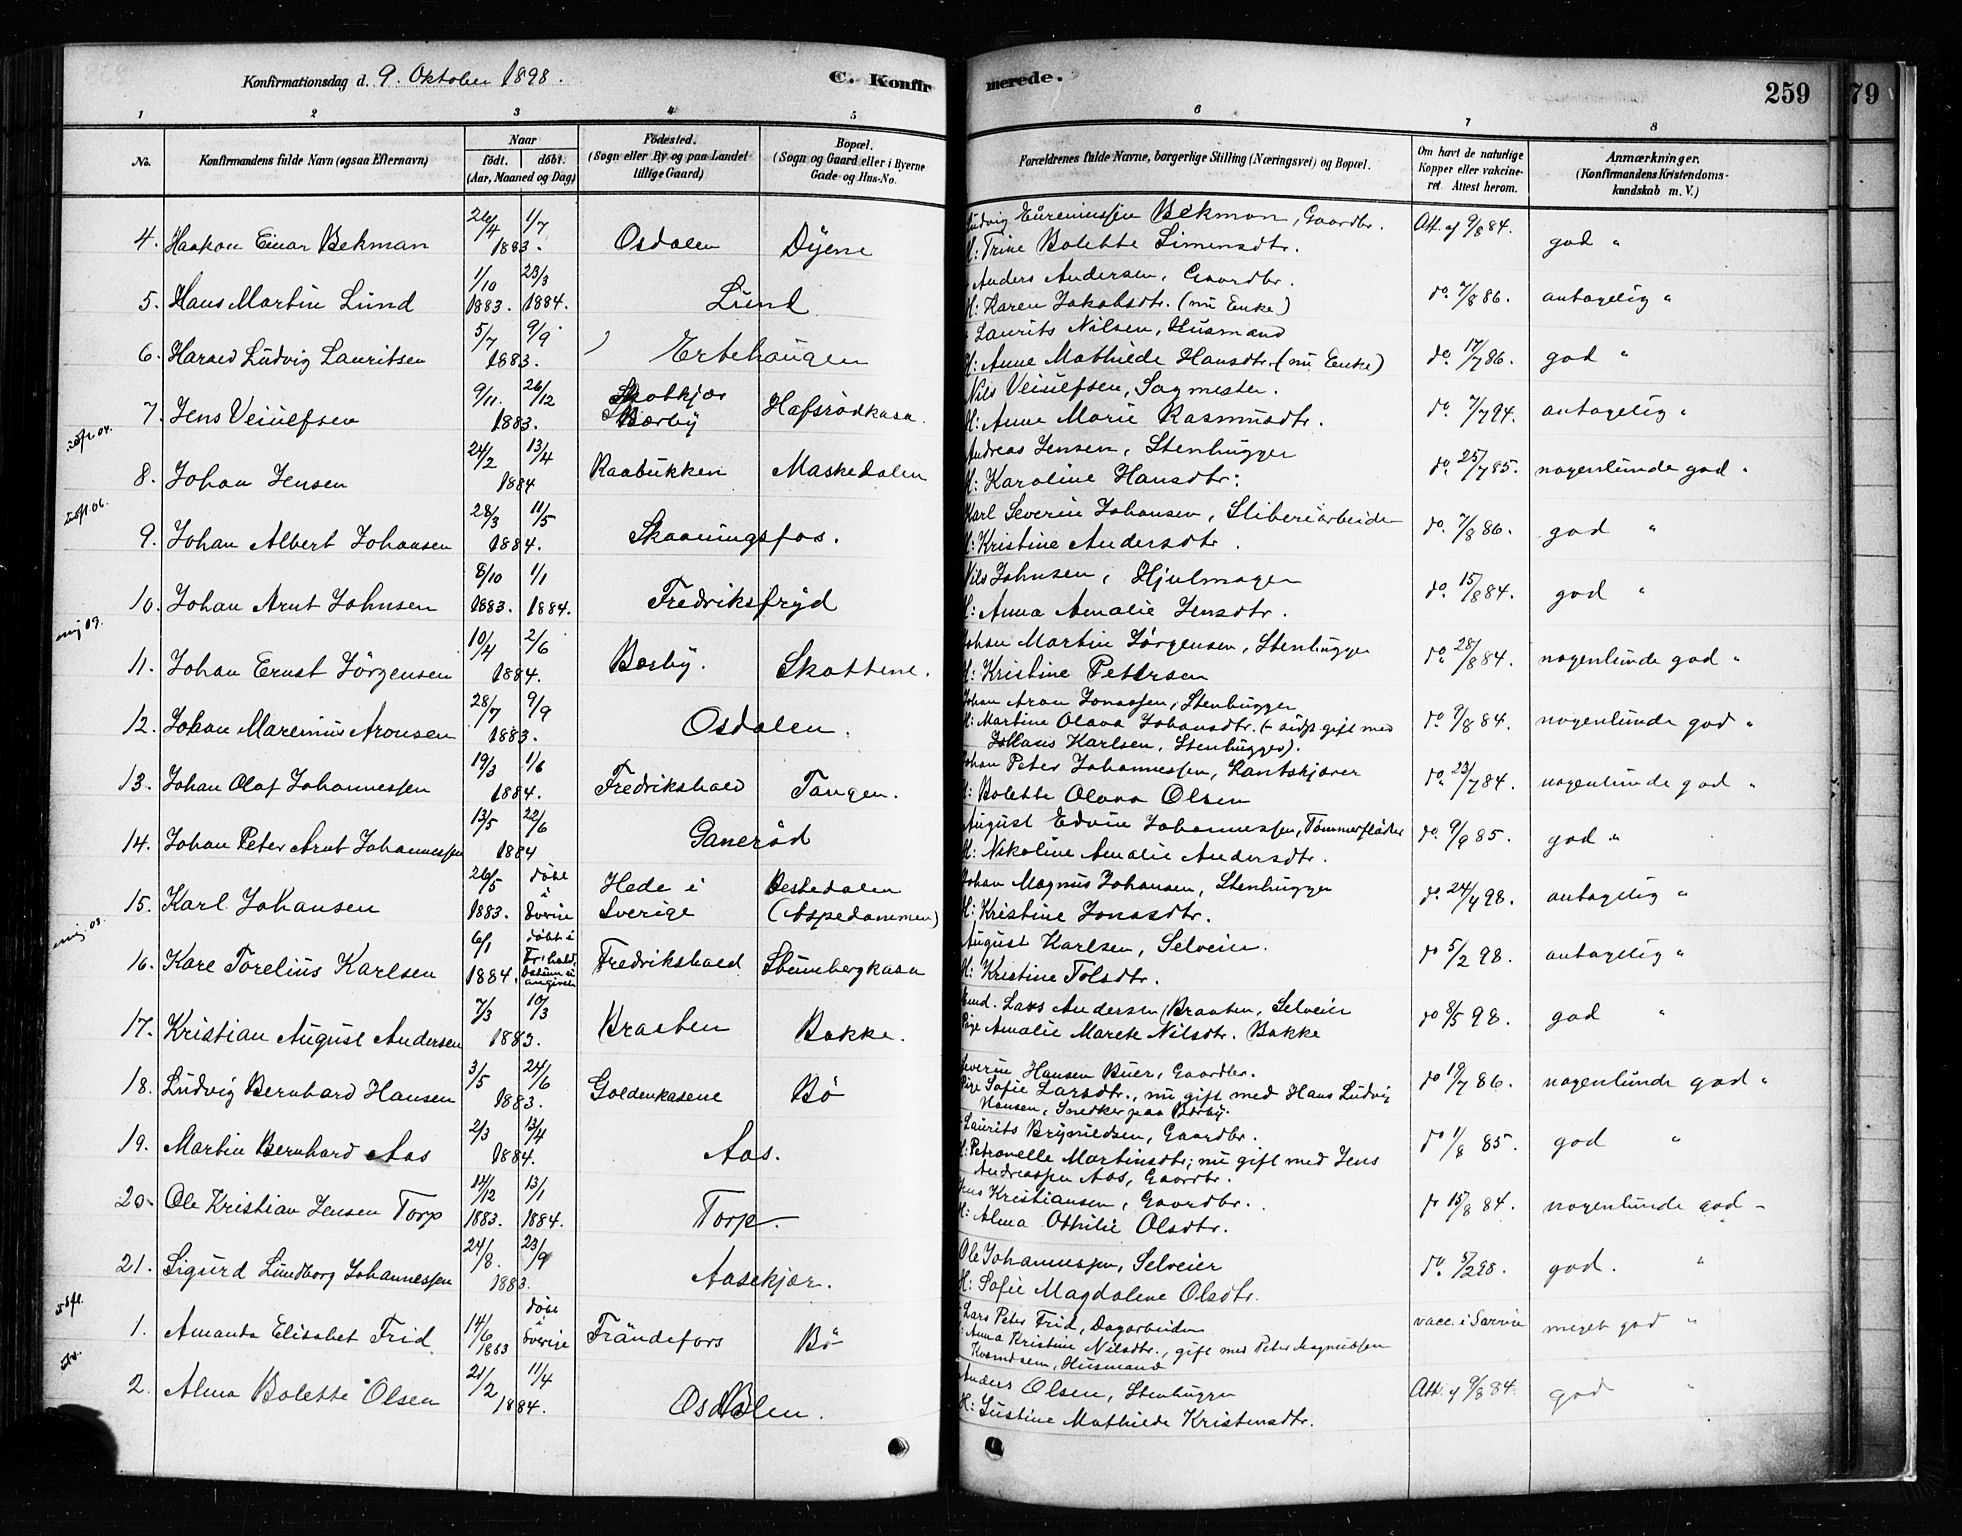 Konfirmationsdag d. 9. Oktober 1898. C. Konfirmerede. 259 79
1 2 3 4 5 6 7 8
No. Konfirmandens fulde Navn (ogsaa Efternavn) Naar født. døbt. (Aar, Maaned og Dag) Fødested. (Sogn eller By og paa Landet tillige Gaard) Bopæl. (Sogn og Gaard eller i Byerne Gade og Hus-No. Forældrenes fulde Navne, borgerlige Stilling (Næringsvei) og Bopæl. Om havt de naturlige Kopper eller vakcineret. Attest herom. Anmærkninger. (Konfirmandens Kristendomskundskab m. V.)
4. Haakon Einar Bekman 26/4 1/7 1883. Osdalen Dyene Ludvig Eureniussen Bekman, Gaardbr.
H: Trine Bolette Simensdtr. Att. af 9/8 84. god "
5. Hans Martin Lund 1/10 1883. 23/3 1884. Lund Anders Andersen, Gaardbr.
H: Karen Jakobsdtr. (nu Enke) do. 7/8 86. antagelig "
6. Harald Ludvig Lauritsen 5/7 9/9 1883. Ertehaugen Laurits Nilsen, Husmand
H: Anne Mathilde Hansdtr. (nu Enke) do. 17/7 86. god "
7. Jens Veiulfsen 9/11. 26/12 1883. Skotkjær Børby Hafsrødkasa. Nils Veiulfsen, Sagmester.
H: Anne Marie Rasmusdtr. do. 7/7 94. antagelig "
8. Johan Jensen 24/2 13/4 1884 Raabukken Maskedalen Andreas Jensen, Stenhugger
H: Karoline Hansdtr. do. 25/7 85. nogenlunde god "
9. Johan Albert Johansen 28/3 11/5 1884. Skaaningsfos. Karl Severin Johansen, Sliberiarbeider
H: Kristine Andersdtr. do. 7/8 86. god "
10. Johan Arnt Johnsen 8/10 1883. 1/1 1884. Fredriksfryd Nils Johnsen, Hjulmager
H: Anna Amalie Jensdtr. do. 15/8 84. god "
11. Johan Ernst Jørgensen 10/4 2/6 1884. Børby. Skottene. Johan Martin Jørgensen, Stenhugger
H: Kristine Pettersen do. 28/8 84. nogenlunde god "
12. Johan Marenius Aronsen 28/7 9/9 1883. Osdalen. Johan Aron Jonassen, Stenhugger
H: Martine Olava Johansdtr. (- sidst gift med
Johans Karlsen, Stenhugger). do. 9/8 84. nogenlunde god "
13. Johan Olaf Johannessen 19/3 1/6 1884. Fredrikshald Tangen. Johan Peter Johannessen, Kantskjærer
H: Bolette Olava Olsen do. 23/7 84. nogenlunde god "
14. Johan Peter Arnt Johannessen 13/5 22/6 1884 Ganerød August Edvin Johannessen, Tømmerfløder
H: Nikoline Amalie Andersdtr. do. 9/9 85. god "
15. Karl Johansen 26/5 1883. døbt i Sverige Hede i Sverige Bestedalen (Aspedammen) Johan Magnus Johansen, Stenhugger
H: Kristine Jonasdtr. do. 24/4 98. antagelig "
16. Kare Torelius Karlsen 6/1 1884. døbt i Fr.hald. Fredrikshald Stumbergkasa August Karlsen, Selveier.
H: Kristine Tolsdtr. do 5/2 98. antagelig "
17. Kristian August Andersen 7/3 10/3 1883. Braaten Bakke. Lars Andersen Braaten, Selveier
Pige Amalie Marete Nilsdtr. Bakke do 8/5 98. god "
18. Ludvig Bernhard Hansen 3/5 24/6 1883. Goldenkasene Bø Severin Hansen Buer, Gaardbr.
Pige Sofie Larsdtr., nu gift med Hans Ludvig
Hansen, Snedker paa Børby. do 19/7 86. nogenlunde god "
19. Martin Bernhard Aas 2/3 13/4 1884. Aas. Laurits Brynildsen, Gaardbr.
H: Petronelle Martinsdtr; nu gift med Jens
Andreassen Aas, Gaardbr. do 1/8 85. god "
20. Ole Kristian Jensen Torp 14/12 1883. 13/1 1884. Torp. Jens Kristiansen, Gaardbr.
H: Alma Othilie Olsdtr. do 15/8 84. nogenlunde god -
21. Sigurd Lundborg Johannessen 24/8. 23/9 1883. Aasekjær. Ole Johannessen, Selveier
H: Sofie Magdalene Olsdtr. do. 5/2 98. god. "
1. Amanda Elisabet Frid 14/6 1883 døbt i Sverige Frändefors Bø Lars Peter Frid, Dagarbeider
Anna Kristine Nilsdtr., gift med Peter Magnussen
Husmand vacc. i Sverige meget god "
2. Alma Bolette Olsen 21/2 11/4 1884. Osdalen. Anders Olsen, Stenhugger
H: Gustine Mathilde Kristensdtr. Att. af 9/8 84. god "